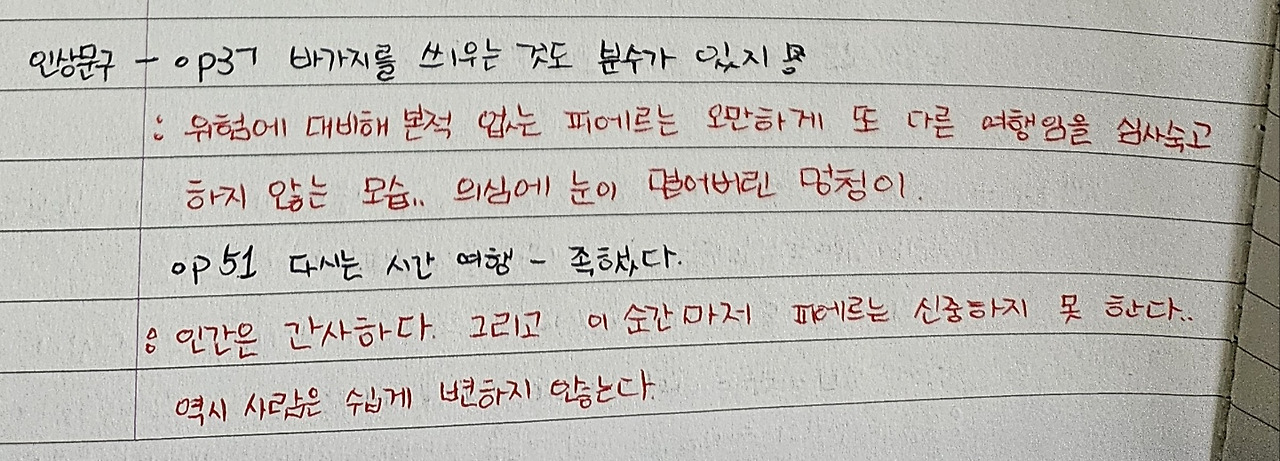 인상문구 - op37 바가지를 씌우는 것도 분수가 있지
: 위험에 대비해 본적 없는 피에르는 오만하게 또 다른 여행임을 심사숙고
하지 않는 모습.. 의심에 눈이 멀어버린 멍청이.
op51 다시는 시간 여행 - 족했다.
: 인간은 간사하다. 그리고 이 순간마저 피에르는 신중하지 못 한다..
역시 사람은 쉽게 변하지 않는다.